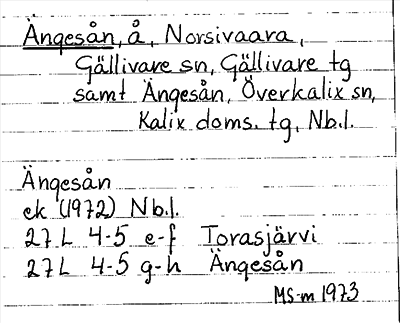 Ängesån, å, Norsivaara,
Gällivare sn, Gällivare tg
samt Ängesån, Överkalix sn,
Kalix doms. tg, Nb.l.
Ängesån
ek (1972) Nb.l.
27 L 4-5 e-f Torasjärvi
27 L 4-5 g-h Ängesån
MS-m 1973